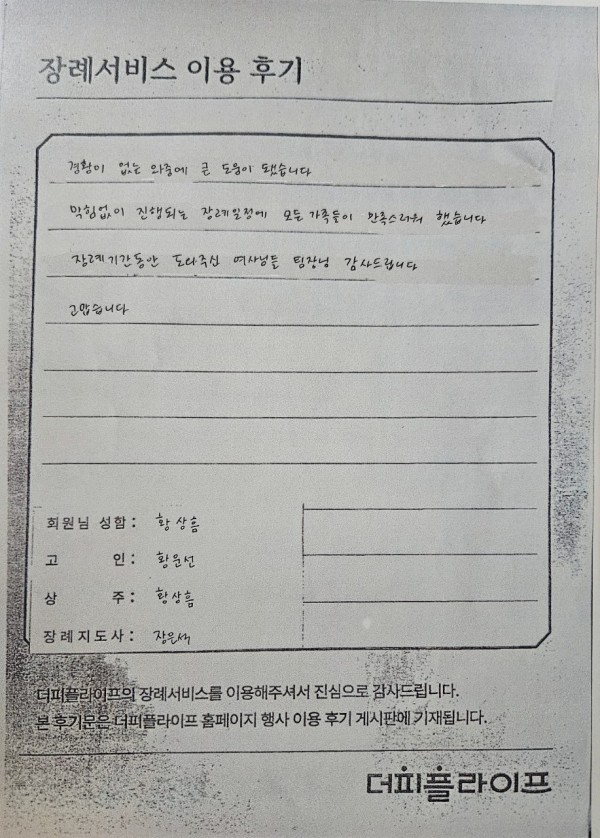 장례서비스 이용 후기
경황이 없는 와중에 큰 도움이 됐습니다
막힘없이 진행되는 장례일정에 모든 가족들이 만족스러워 했습니다
장례기간동안 도와주신 여사님들 팀장님 감사드립니다
고맙습니다
회원님 성함: 황상흠
고 인: 황운선
상 주: 황상흠
장례지도사: 장은석
더피플라이프의 장례서비스를 이용해주셔서 진심으로 감사드립니다.
본 후기문은 더피플라이프 홈페이지 행사 이용 후기 게시판에 기재됩니다.
더피플라이프